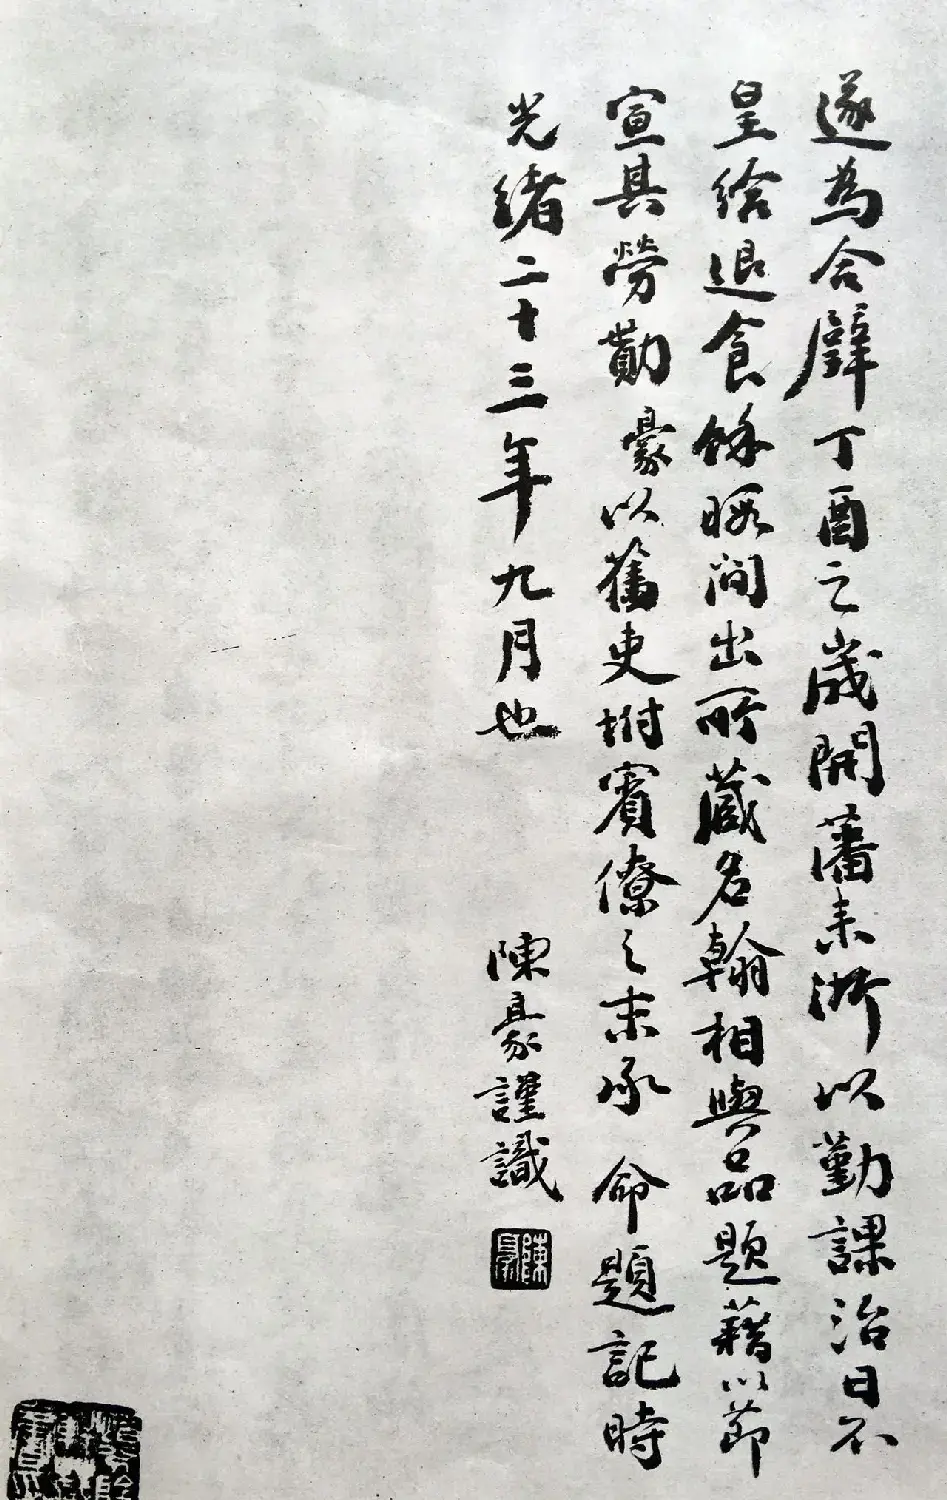 遂為合璧丁酉之歲開藩来浙以勤課治日不
皇給退食餘暇间出所藏名翰相與品題藉以節
宣其勞勩豪以舊吏坿賓僚之末承命題記時
光緒二十三年九月也
陳豪謹識
陳豪